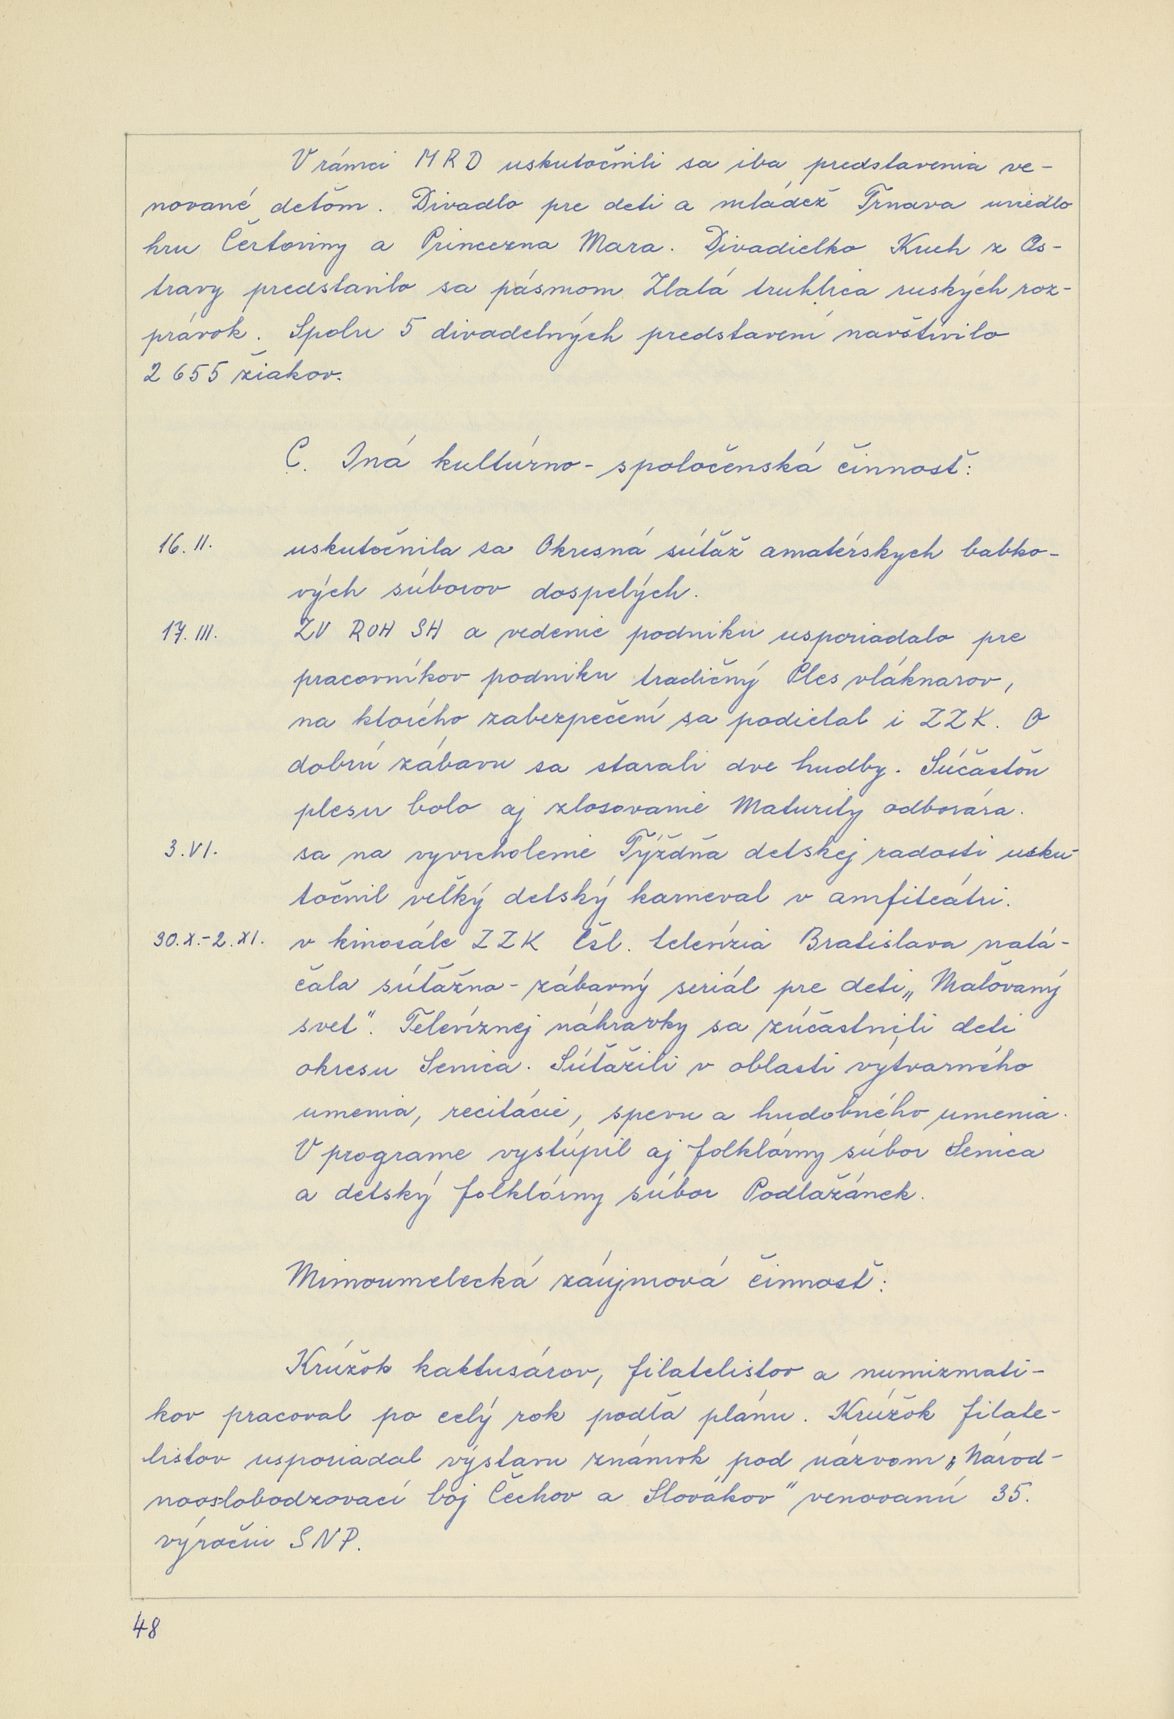 V rámci MRD uskutočnili sa iba predstavenia ve-
nované deťom. Divadlo pre deti a mládež Trnava uviedlo
hru Čertoviny a Princezna Mara. Divadielko Kuch z Os-
travy predstavilo sa pásmom Zlatá truhlica ruských roz-
právok. Spolu 5 divadelných predstavení navštívilo
2 655 žiakov.
C. Iná kultúrno-spoločenská činnosť:
16. II. uskutočnila sa Okresná súťaž amatérskych babko-
vých súborov dospelých.
17. III. ZV ROH SH a vedenie podniku usporiadalo pre
pracovníkov podniku tradičný Ples vláknarov,
na ktorého zabezpečení sa podielal i ZZK. O
dobrú zábavu sa starali dve hudby. Súčasťou
plesu bolo aj zlosovanie Maturity odborára.
3. VI. sa na vyvrcholenie Týždňa detskej radosti usku-
točnil veľký detský karneval v amfiteátri.
30. X.-2. XI. v kinosále ZZK Čsl. televízia Bratislava natá-
čala súťažno-zábavný seriál pre deti „Maľovaný
svet". Televíznej náhravky sa zúčastnili deti
okresu Senica. Súťažili v oblasti výtvarného
umenia, recitácie, spevu a hudobného umenia.
V programe vystúpil aj folklórny súbor Senica
a detský folklórny súbor Podlažánek.
Mimoumelecká záujmová činnosť:
Krúžok kaktusárov, filatelistov a numizmati-
kov pracoval po celý rok podľa plánu. Krúžok filate-
listov usporiadal výstavu známok pod názvom „Národ-
nooslobodzovací boj Čechov a Slovákov" venovanú 35.
výročiu SNP.
48